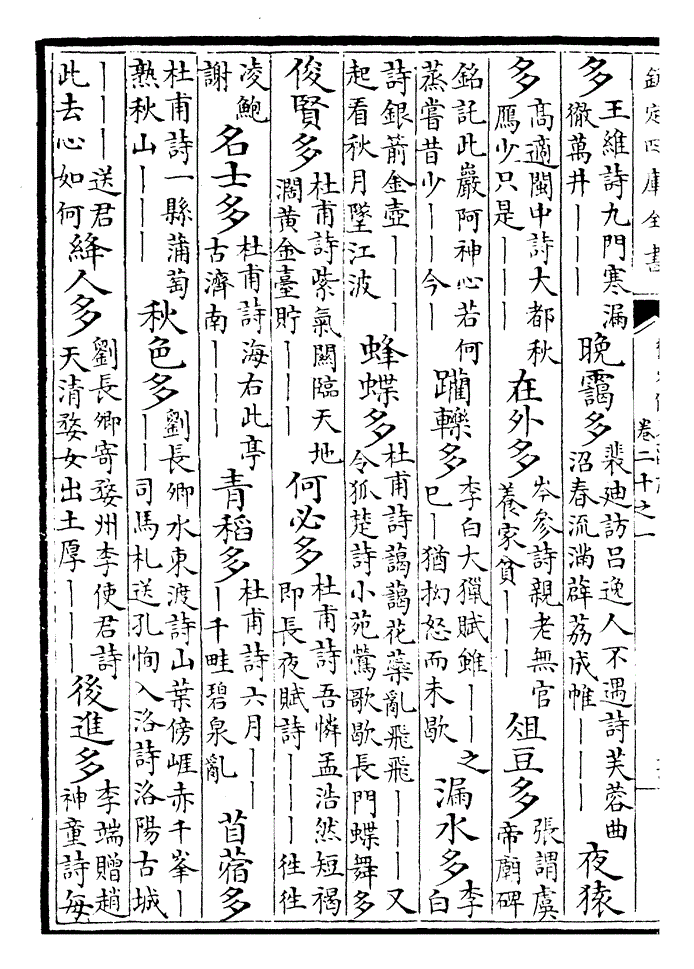 欽定四庫全書 卷二十之一
多 王維詩九門寒漏徹萬井——— 晚靄多 裴廸訪呂逸人不遇詩芙蓉曲沼春流滿薜荔成帷——— 夜猿
多 高適閩中詩大都秋鴈少只是——— 在外多 岑參詩親老無官養家貧——— 俎豆多 張謂虞帝廟碑
銘託此巖阿神心若何蒸嘗昔少——今— 躪轢多 李白大獵賦雖——之已—猶拗怒而未歇 漏水多 李白
詩銀箭金壺———起看秋月墜江波 蜂蝶多 杜甫詩藹藹花蘂亂飛飛———又令狐楚詩小苑鶯歌歇長門蝶舞多
俊賢多 杜甫詩紫氣關臨天地濶黃金臺貯——— 何必多 杜甫詩吾憐孟浩然短褐即長夜賦詩———徃徃
凌鮑謝 名士多 杜甫詩海右此亭古濟南——— 青稻多 杜甫詩六月———千畦碧泉亂 苜蓿多
杜甫詩一縣蒲萄熟秋山——— 秋色多 劉長卿水東渡詩山葉傍崕赤千峯———司馬札送孔恂入洛詩洛陽古城
———送君此去心如何 絳人多 劉長卿寄婺州李使君詩天清婺女出土厚——— 後進多 李端贈趙神童詩每